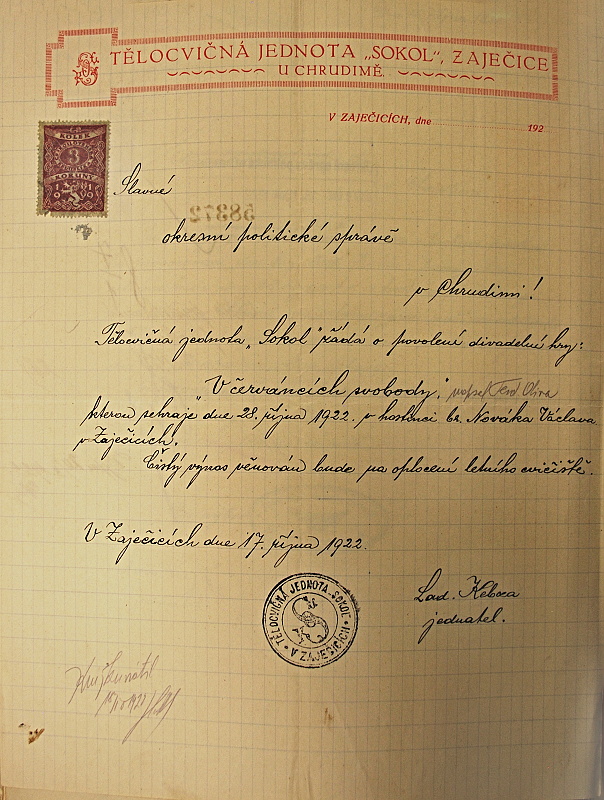 TĚLOCVIČNÁ JEDNOTA „SOKOL", ZAJEČICE
U CHRUDIMĚ.
V ZAJEČICÍCH, dne 192
KOLEK
3
KORUNY
1919
Slavné
58372
okresní politické správě
v Chrudimi!
Tělocvičná jednota „Sokol" žádá o povolení divadelní hry:
„V červáncích svobody." napsal Ferd Oliva
kterou sehraje dne 28. října 1922 v hostinci br. Nováka Václava
v Zaječicích.
Čistý výnos věnován bude na oplocení letního cvičiště.
V Zaječicích dne 17. října 1922.
TĚLOCVIČNÁ JEDNOTA SOKOL
V ZAJEČICÍCH
Lad.
jednatel.